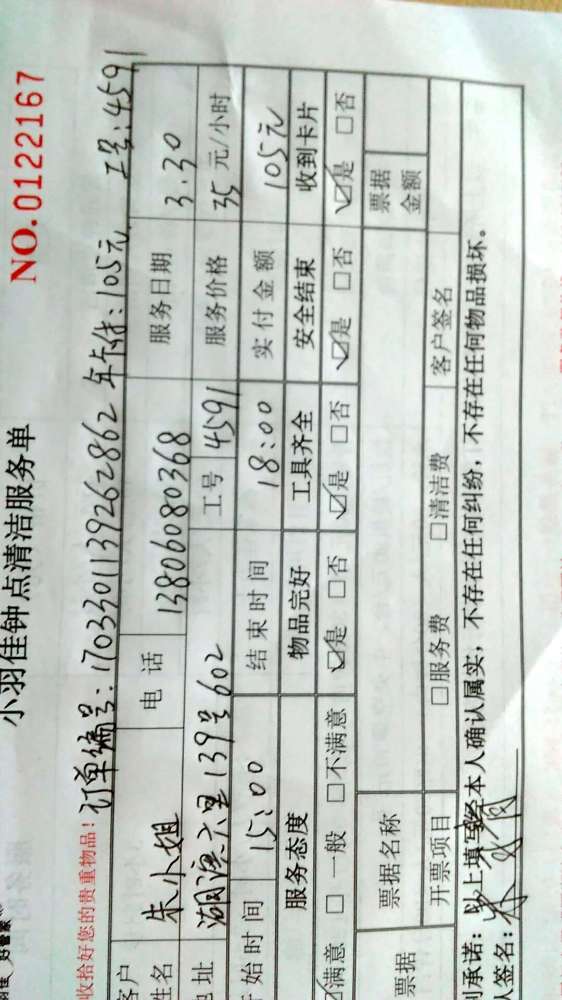 小羽佳钟点清洁服务单
NO.0122167
收拾好您的贵重物品! 订单编号:170330113926 2862 年卡付:105元 工号:4591
客户姓名 朱小姐 电话 13806080368 服务日期 3.30
地址 湖滨六里139号602 工号 4591 服务价格 35元/小时
开始时间 15:00 结束时间 18:00 实付金额 105元
服务态度 物品完好 工具齐全 安全结束 收到卡片
☑满意 □一般 □不满意 ☑是 □否 ☑是 □否 ☑是 □否 ☑是 □否
票据 票据名称 票据金额
开票项目 □服务费 □清洁费 客户签名
承诺:以上填写经本人确认属实,不存在任何纠纷,不存在任何物品损坏。
签名: